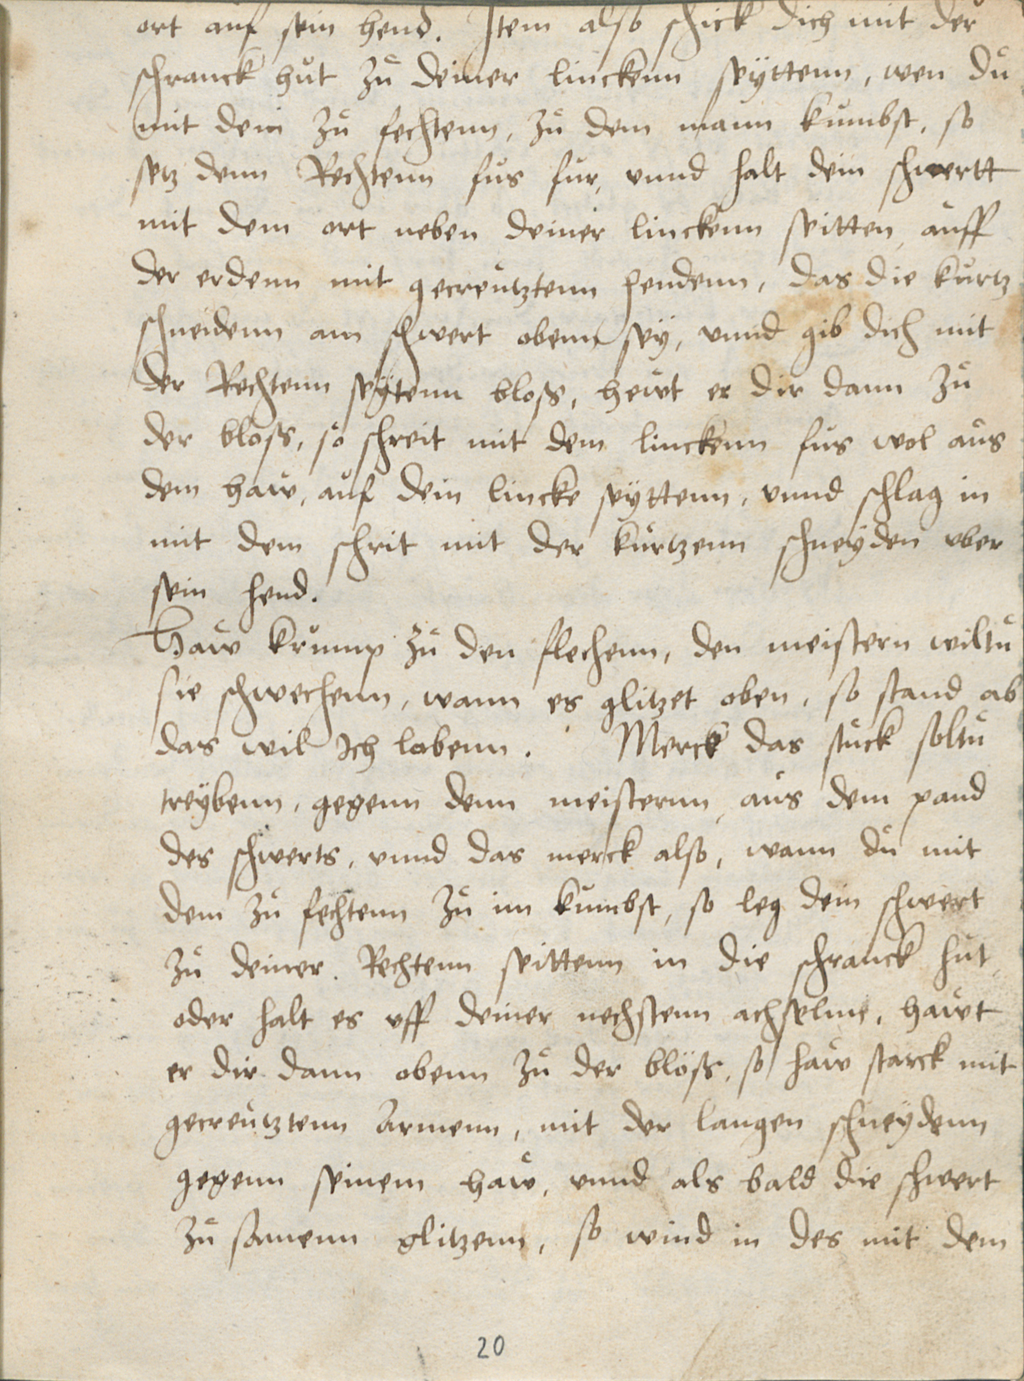 ort auf sein hend. Item also schick dich mit der
schranck hůt zů deiner linckenn seÿttenn, wen dů
mit dem zů fechtenn, zů dem mann kůmbst, so
setz denn Rechtenn fůs fůr, vnnd halt dein schwertt
mit dem ort neben deiner linckenn seitten, aůff
der erdenn mit gecreůtztenn hendenn, das die kůrtz
schneidenn am schwert obenn seÿ, vnnd gib dich mit
der Rechtenn seÿtenn bloß, heẘt er dir dann zů
der bloß, so schreit mit dem linckenn fůs wol aůs
dem haẘ, aůf dein lincke seÿttenn, vnnd schlag in
mit dem schrit mit der kůrtzenn schneÿden vber
sein hend.
Haẘ krůmp zů den flechenn, den meistern wiltů
sie schwechenn, wann es glitzet oben, so stand ab
das wil Ich lobenn. Merck das stůck soltů
treÿbenn, gegenn denn meisternn, aůs dem pand
des schwerts, vnnd das merck also, wann dů mit
dem zů fechtenn zů im kůmbst, so leg dein schwert
zů deiner Rechtenn seittenn in die schranck hůt,
oder halt es vff deiner rechstenn achselnn, haẘt
er dir dann obenn zů der blöß, so haẘ starck mit
gecreůtztenn Armenn, mit der langen schneÿdenn
gegenn seinem haẘ, vnnd als bald die schwert
zů samenn glitzenn, so wind in des mit dem
20